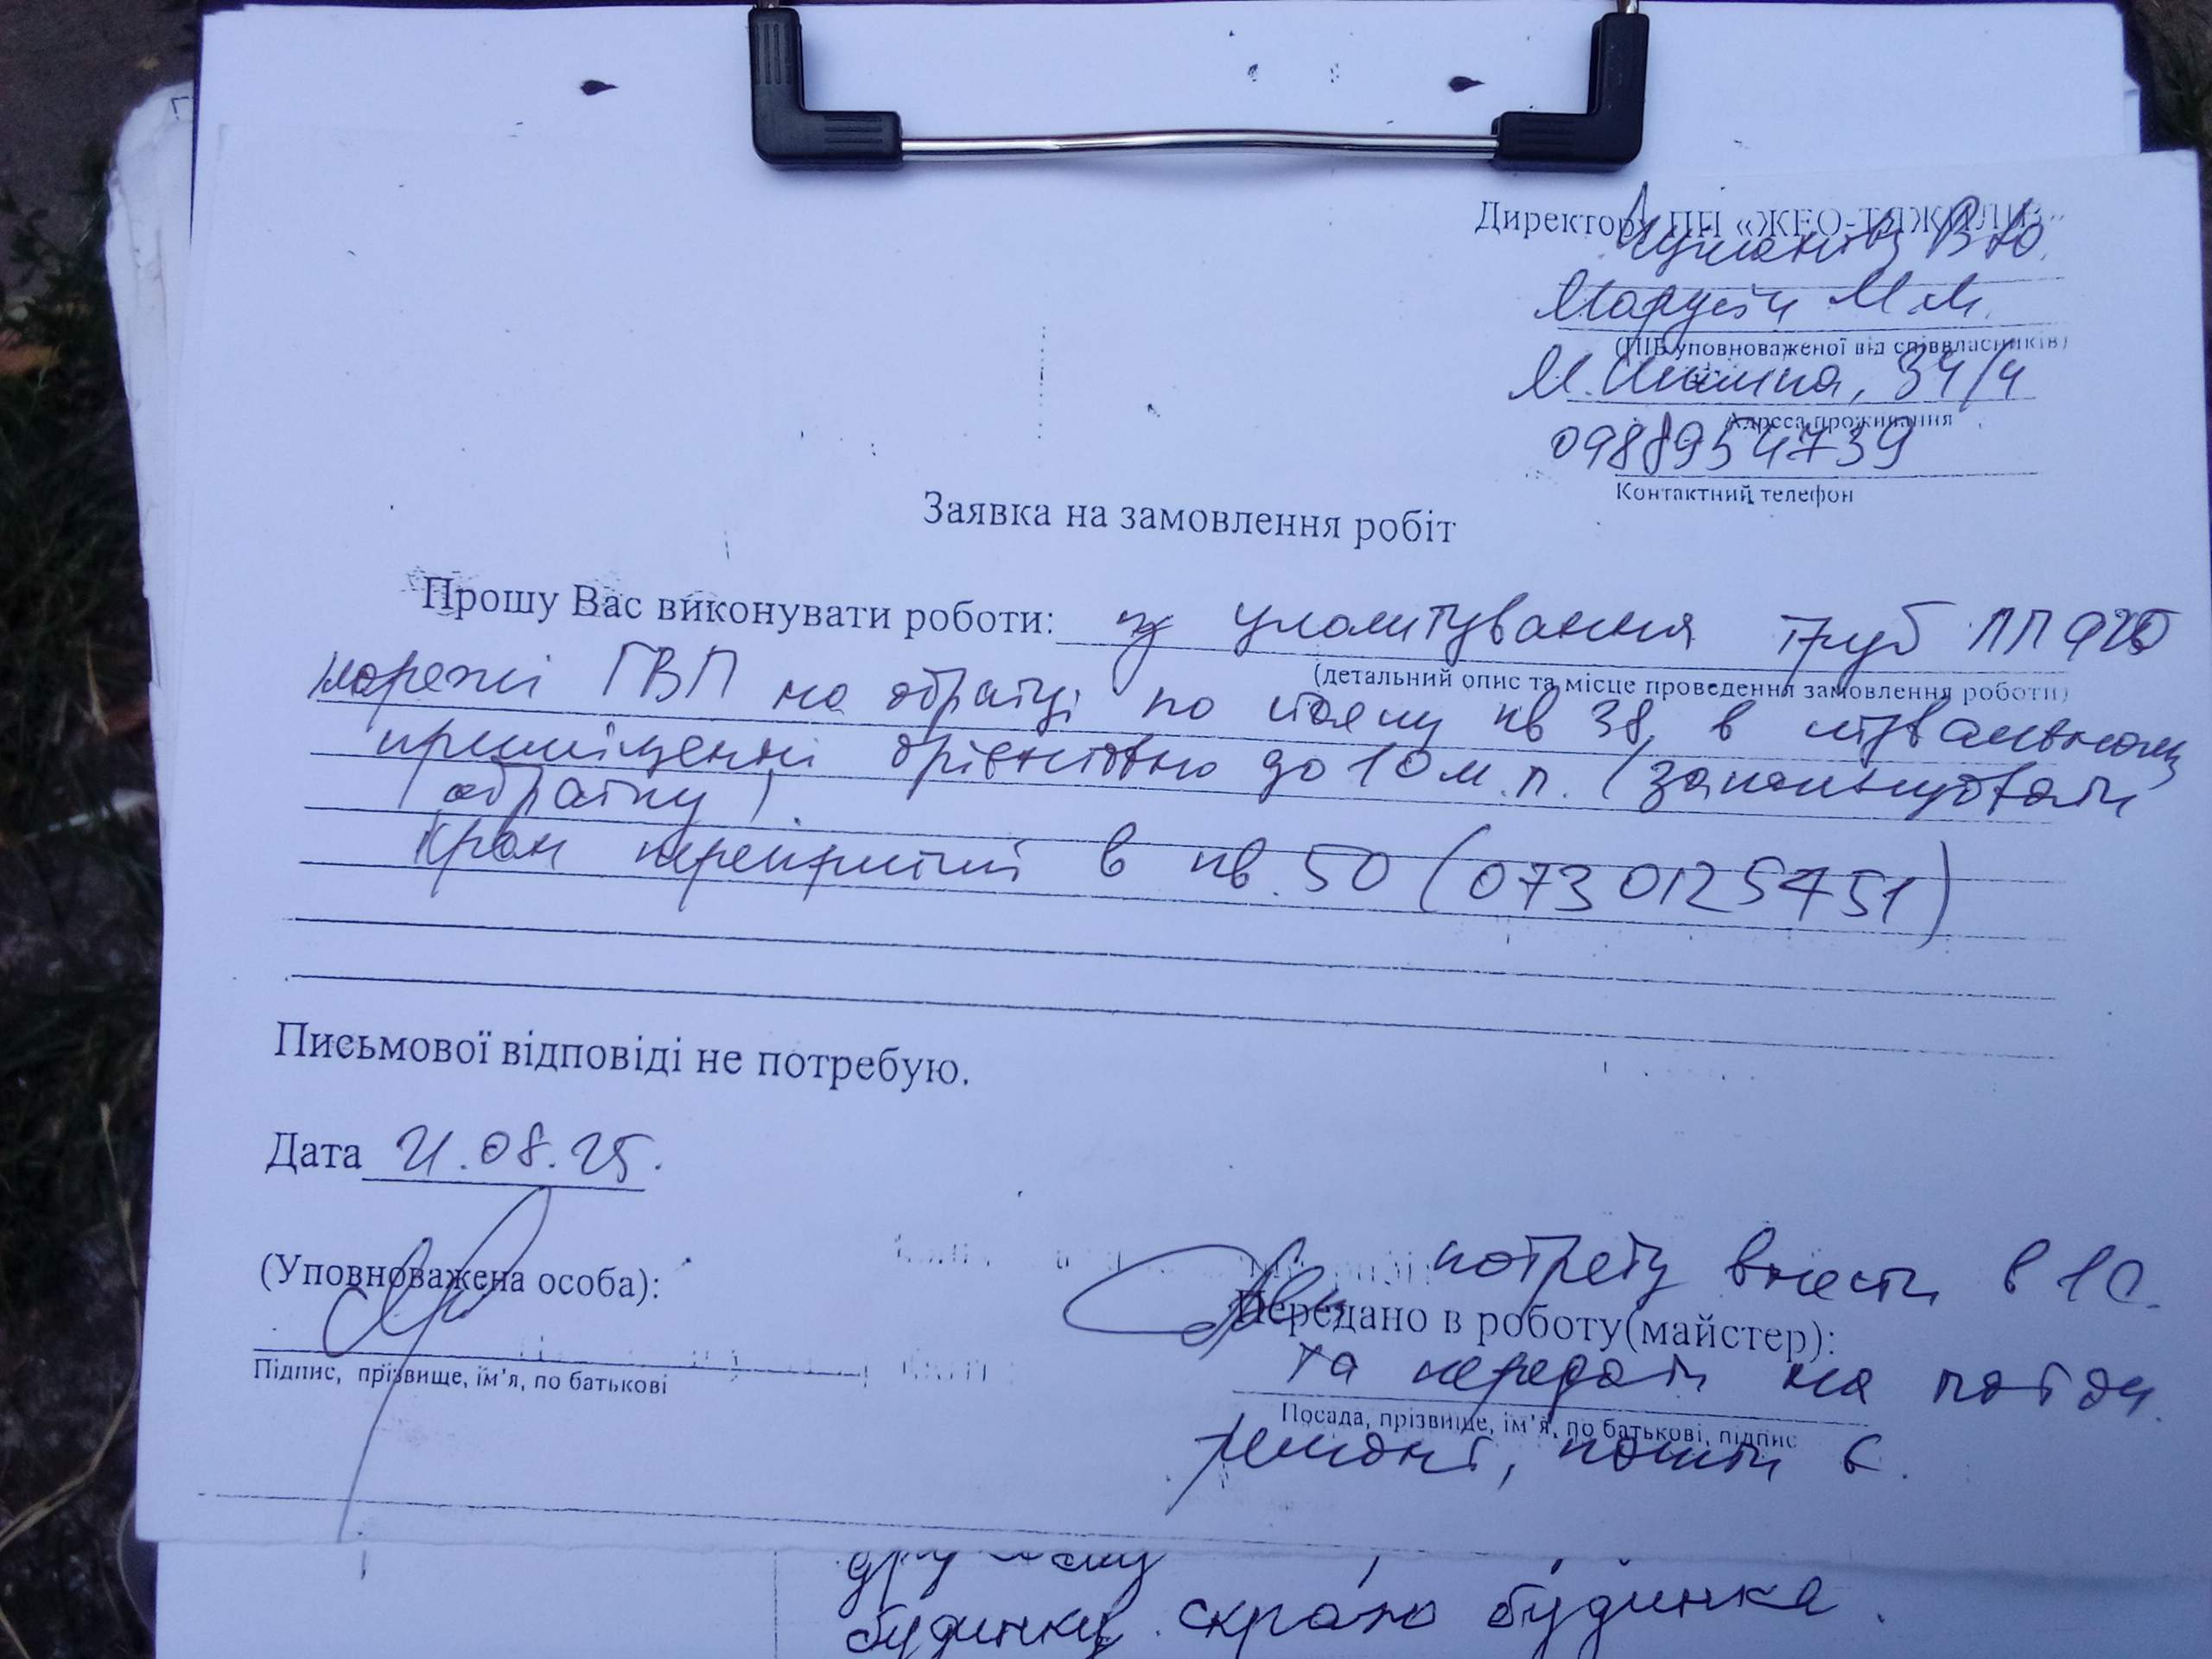 Директору ПП «ЖЕО-ТЯЖИЛІВ»
В.Ю.
М.М.
(ПІБ уповноваженої від співвласників)
М. Шимка, 34/4
Адреса проживання
0988954739
Контактний телефон
Заявка на замовлення робіт
Прошу Вас виконувати роботи: улаштування труб ПП ф20
(детальний опис та місце проведення замовлення роботи)
мережі ГВП на обратці по стояку кв 38, в підвальному
приміщенні орієнтовно до 10 м.п. (закольцювати
обратку).
Кран перекритий в кв. 50 (0730125451)
Письмової відповіді не потребую.
Дата 21.08.25.
(Уповноважена особа):
Підпис, прізвище, ім'я, по батькові
потребу внести в 1С.
Передано в роботу(майстер):
та передати на поточ.
Посада, прізвище, ім'я, по батькові, підпис
ремонт,
будинку скраю будинка.